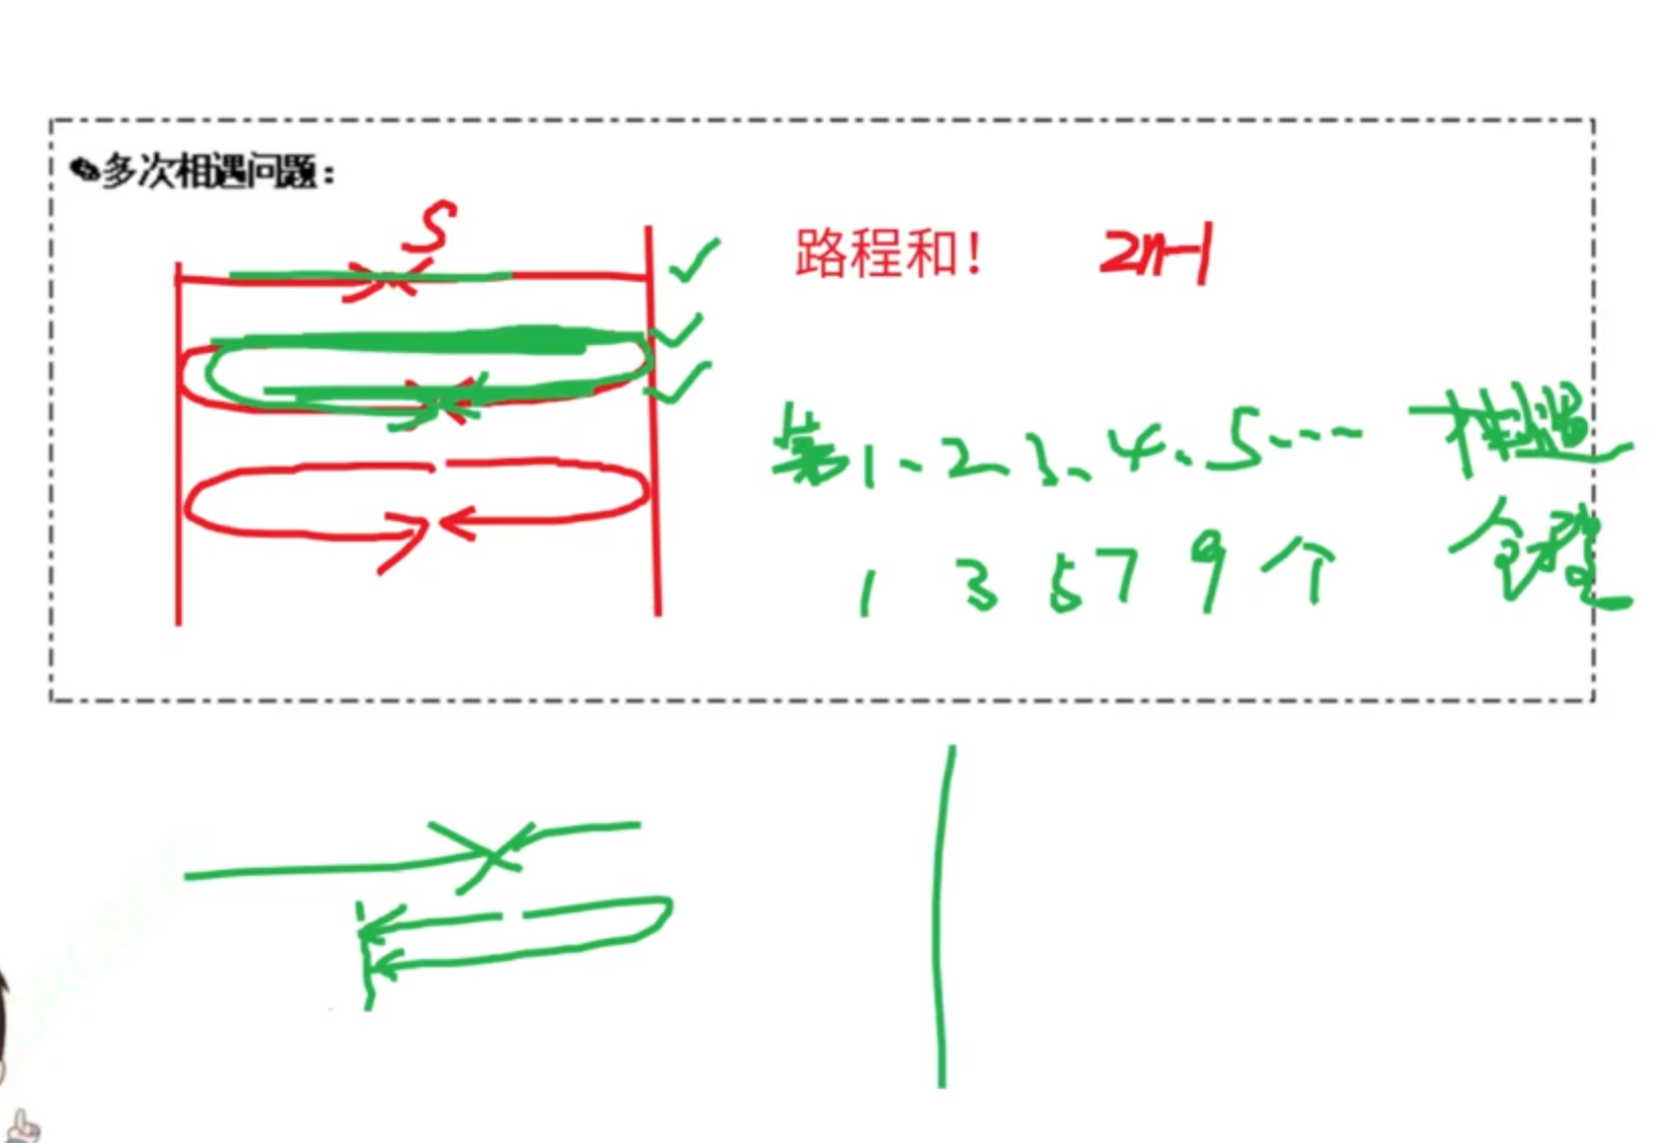 多次相遇问题：
S
路程和！ 2n-1
第1、2、3、4、5…… 相遇
1 3 5 7 9 个 全程